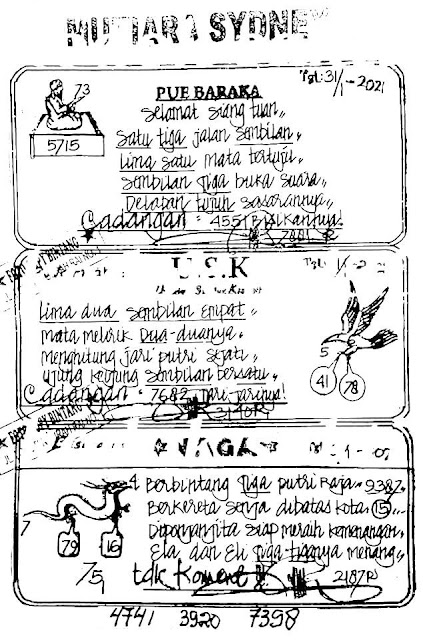 MUTIARA SYDNEY
Tgl: 31/1-2021
73
5715
PUE BARAKA
Selamat siang tuan,,
Satu tiga jalan sembilan,,
Lima satu mata tertuju,,
Sembilan tiga buka suara,,
Delapan tujuh sasarannya,,
Cadangan : 4551
U.S.K
Lima dua sembilan empat,,
Mata melirik Dua-duanya,,
Menghitung jari putri sejati,,
Ujung keujung sembilan bersatu,,
Cadangan : 7682 jari-jarinya!
5
41 78
NAGA
4 Berbintang tiga putri Raja 9387
Berkereta senja dibatas kota (15)
siap meraih kemenangan
Ela dan Eli tiga-tiganya menang,,
7
79 16
75
tdk Koment !!
2187 R
4741 3920 7398